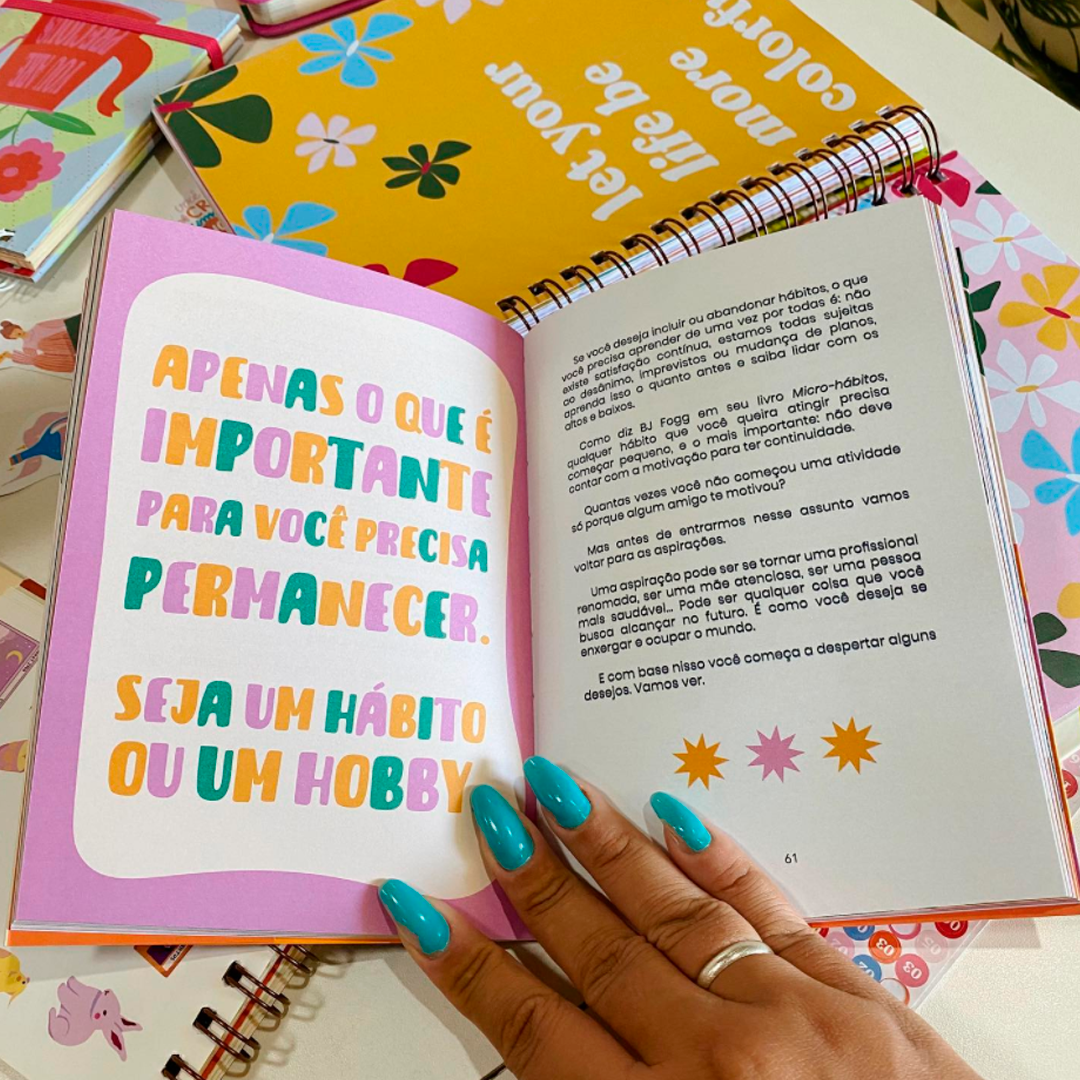 let your
life be
more
colorf
APENAS O QUE É
IMPORTANTE
PARA VOCÊ PRECISA
PERMANECER.
SEJA UM HÁBITO
OU UM HOBBY
Se você deseja incluir ou abandonar hábitos, o que
você precisa aprender de uma vez por todas é: não
existe satisfação contínua, estamos todas sujeitas
ao desânimo, imprevistos ou mudança de planos,
aprenda isso o quanto antes e saiba lidar com os
altos e baixos.
Como diz BJ Fogg em seu livro Micro-hábitos,
qualquer hábito que você queira atingir precisa
começar pequeno, e o mais importante: não deve
contar com a motivação para ter continuidade.
Quantas vezes você não começou uma atividade
só porque algum amigo te motivou?
Mas antes de entrarmos nesse assunto vamos
voltar para as aspirações.
Uma aspiração pode ser se tornar uma profissional
renomada, ser uma mãe atenciosa, ser uma pessoa
mais saudável... Pode ser qualquer coisa que você
busca alcançar no futuro. É como você deseja se
enxergar e ocupar o mundo.
E com base nisso você começa a despertar alguns
desejos. Vamos ver.
61
03
03
02